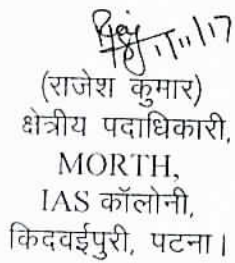 1/11/17
(राजेश कुमार)
क्षेत्रीय पदाधिकारी,
MORTH,
IAS कॉलोनी,
किदवईपुरी, पटना।